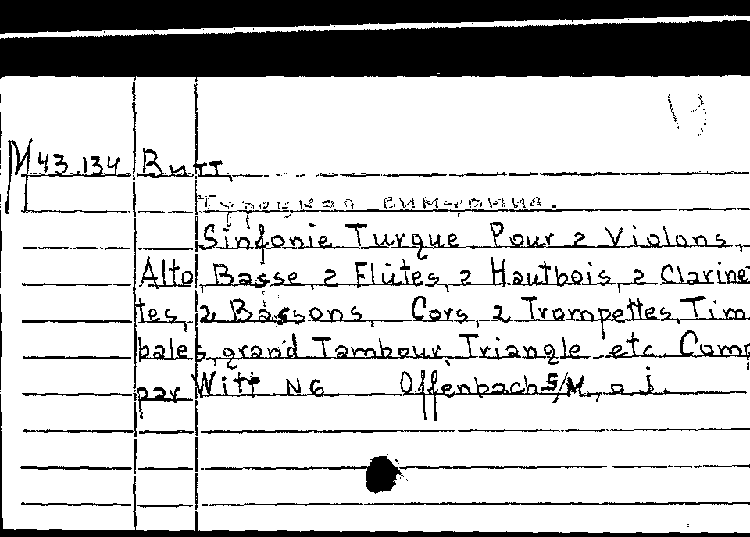 М43.134 Витт,
Турецкая симфония.
Sinfonie Turque Pour 2 Violons,
Alto, Basse, 2 Flûtes, 2 Hautbois, 2 Clarinet
tes, 2 Bassons, Cors, 2 Trompettes, Tim
bales, grand Tambour, Triangle etc Comp
par Witt N6 Offenbach s/M., a j.